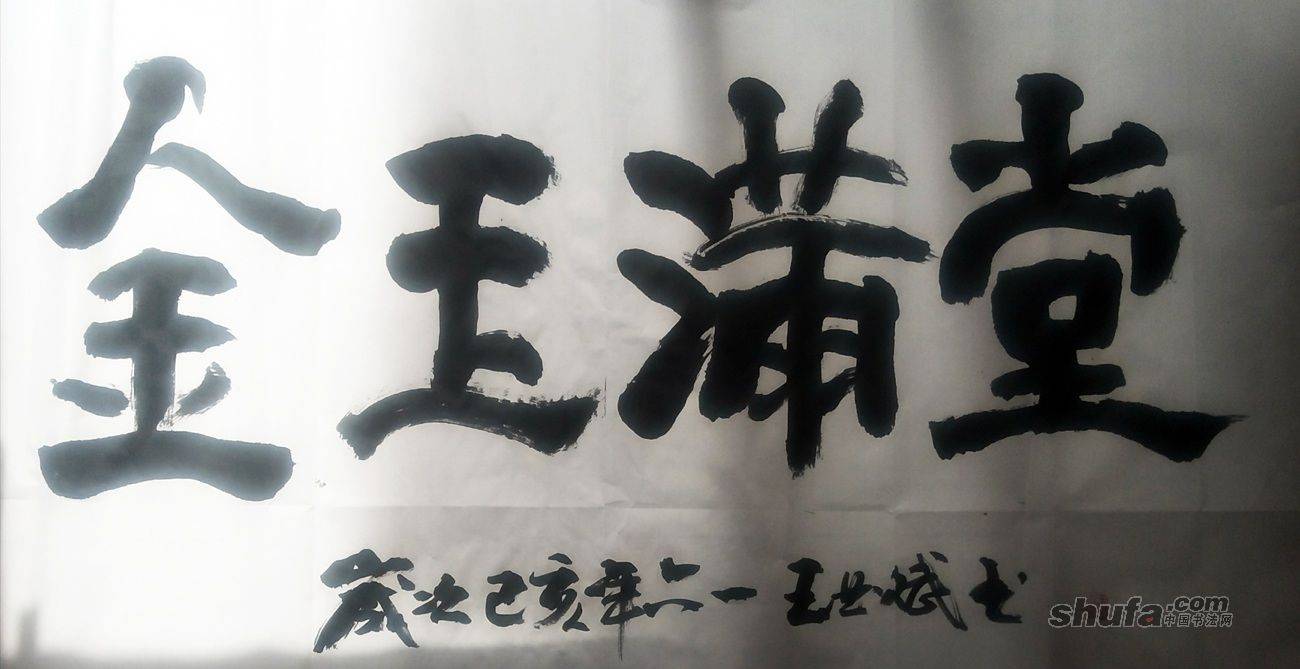 金玉满堂
岁次己亥年六一王世斌书
shufa.com
中国书法网